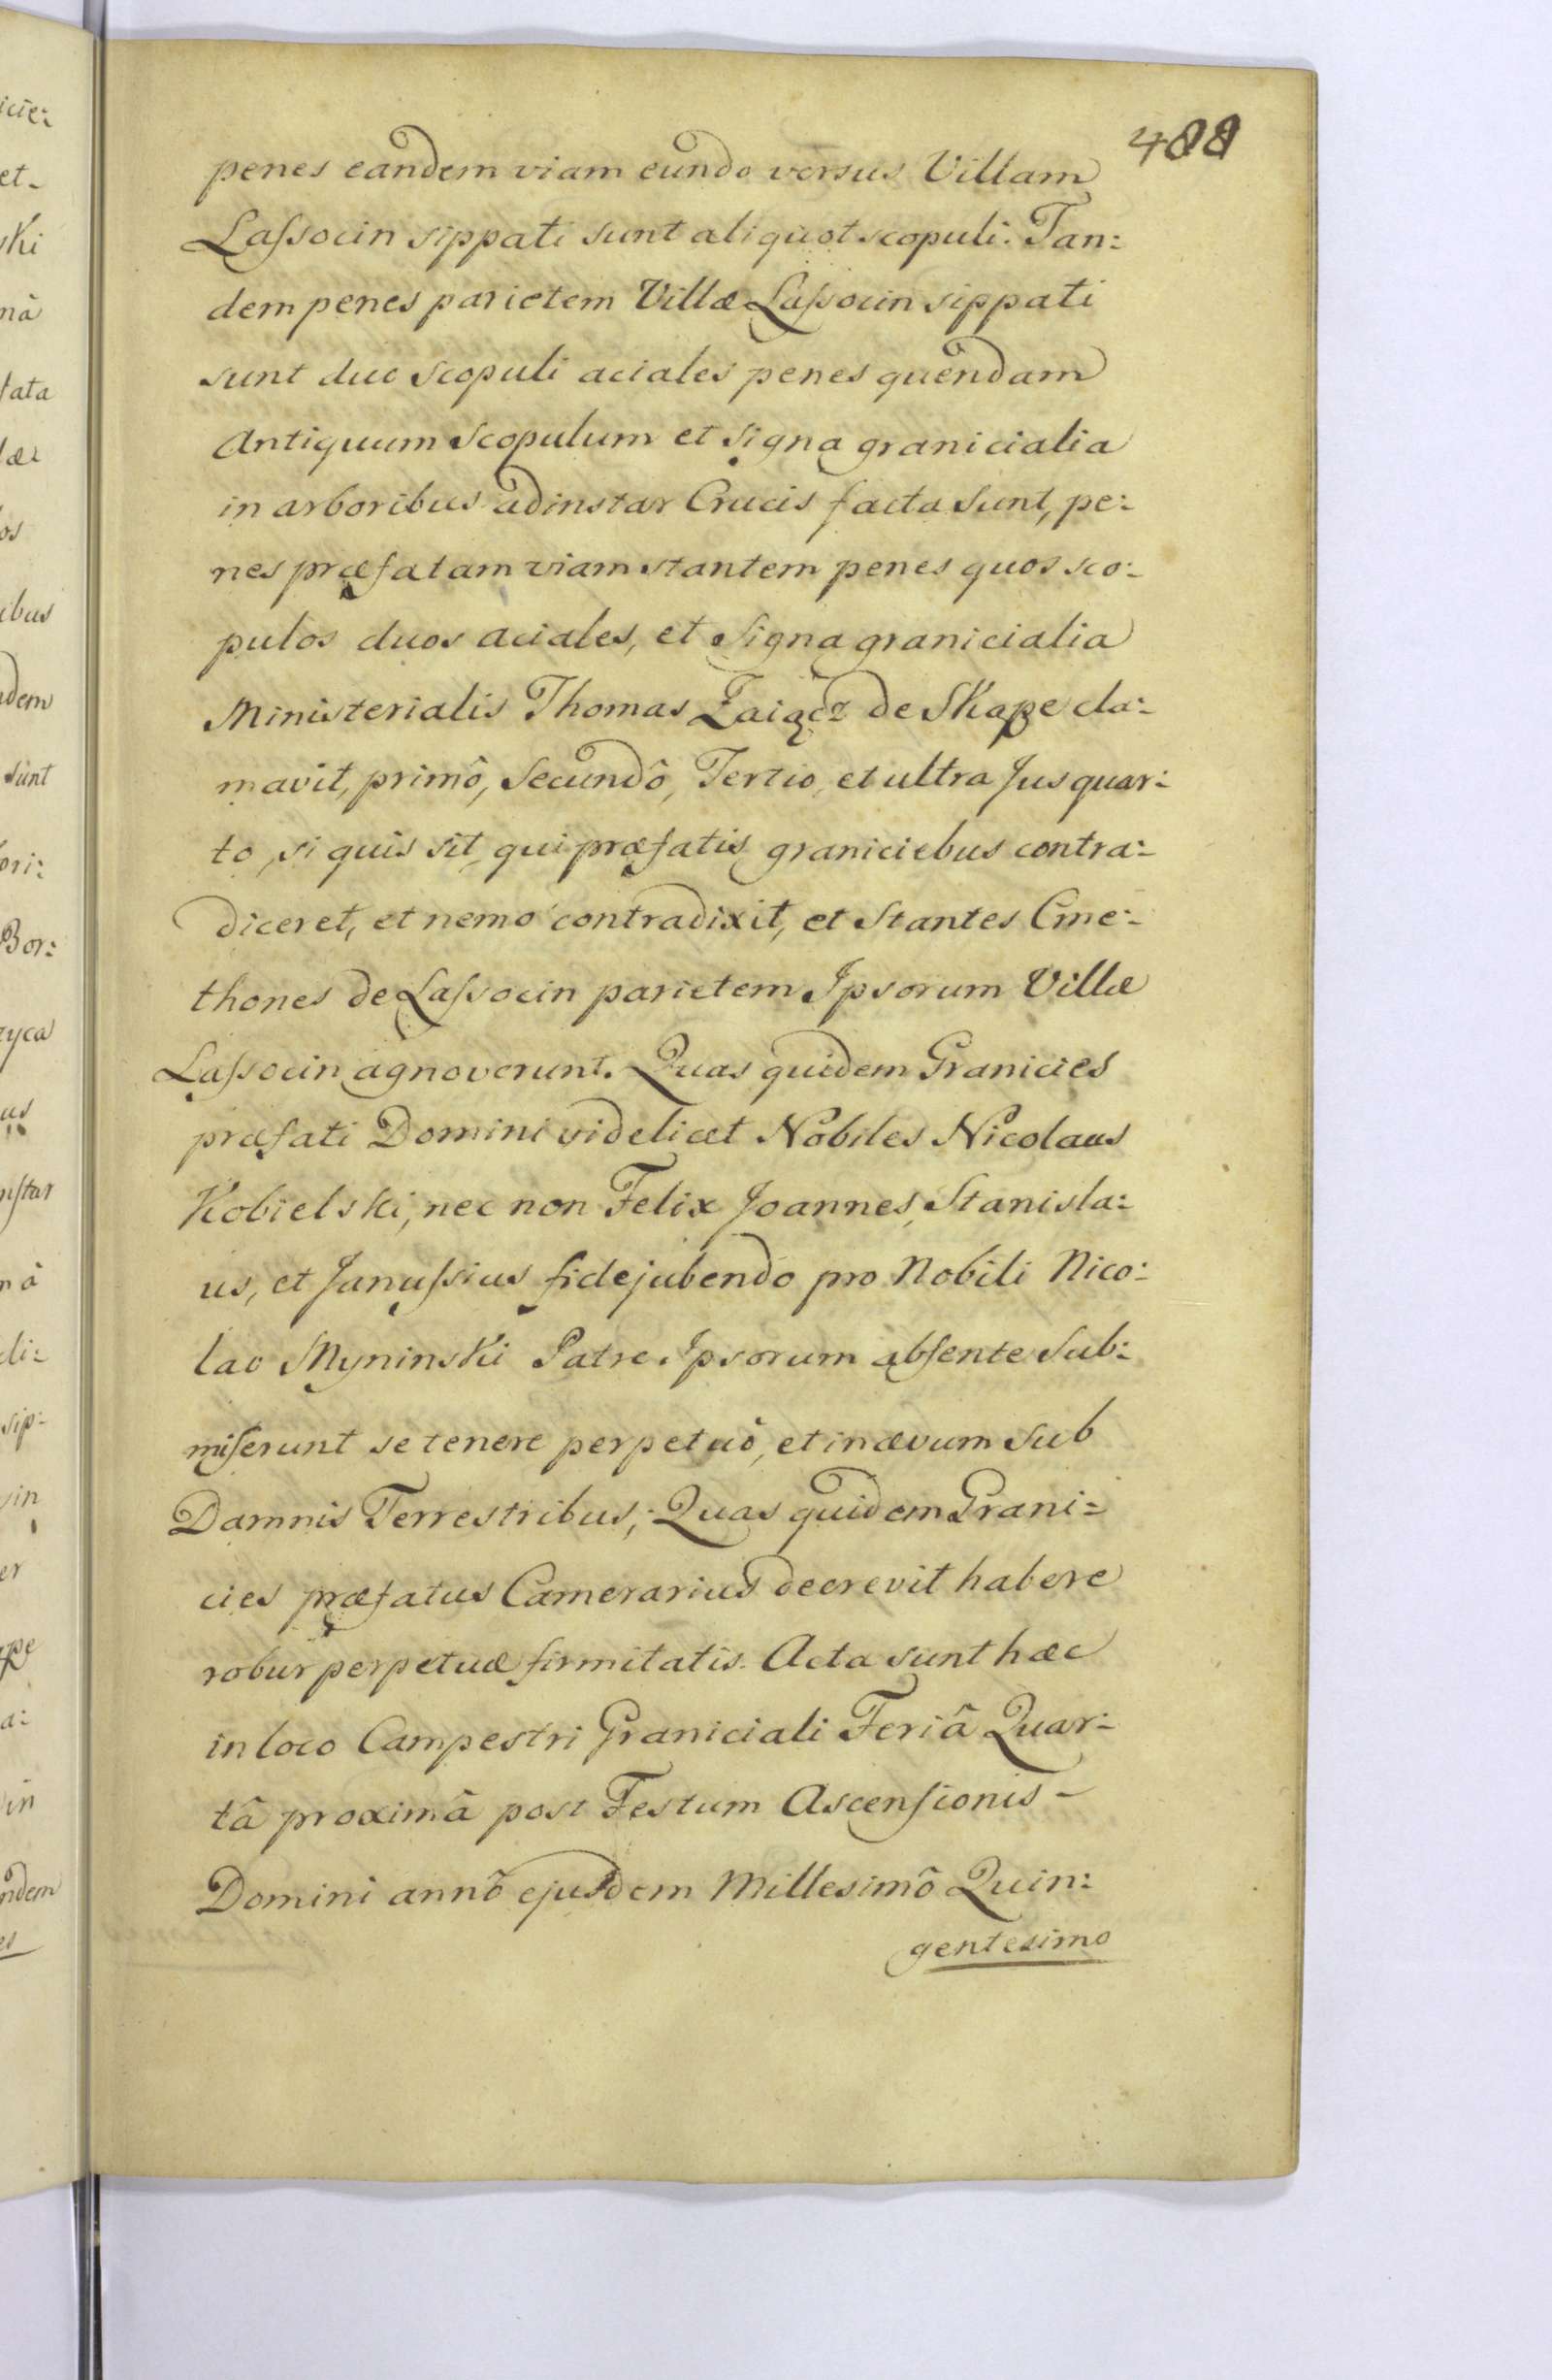 488
penes eandem viam eundo versus Villam
Laſsocin sippati sunt aliquot scopuli. Tan:
dem penes parietem Villæ Laſsocin sippati
sunt duo scopuli aciales penes quendam
Antiquum Scopulum et signa granicialia
in arboribus adinstar Crucis facta sunt, pe:
nes præfatam viam stantem penes quos sco:
pulos duos aciales, et Signa granicialia
Ministerialis Thomas de Skape cla:
mavit, primô, Secundô, Tertio, et ultra Jus quar:
to, si quis sit, qui præfatis graniciebus contra:
diceret, et nemo contradixit, et Stantes Cme:
thones de Laſsocin parietem Ipsorum Villæ
Laſsocin agnoverunt. Quas quidem Granicies
præfati Domini videlicet Nobiles Nicolaus
Kobielski, nec non Felix Joannes, Stanisla:
us, et Januſsius fidejubendo pro Nobili Nico:
lao Myninski Patre Ipsorum abſente Sub:
miſerunt se tenere perpetuò, et in ævum Sub
Damnis Terrestribus; Quas quidem Grani:
cies præfatus Camerarius decrevit habere
robur perpetuæ firmitatis. Acta sunt hæc
in loco Campestri Graniciali Feriâ Quar:
tâ proximâ post Festum Ascenſionis -
Domini annô ejusdem Millesimô Quin:
gentesimo